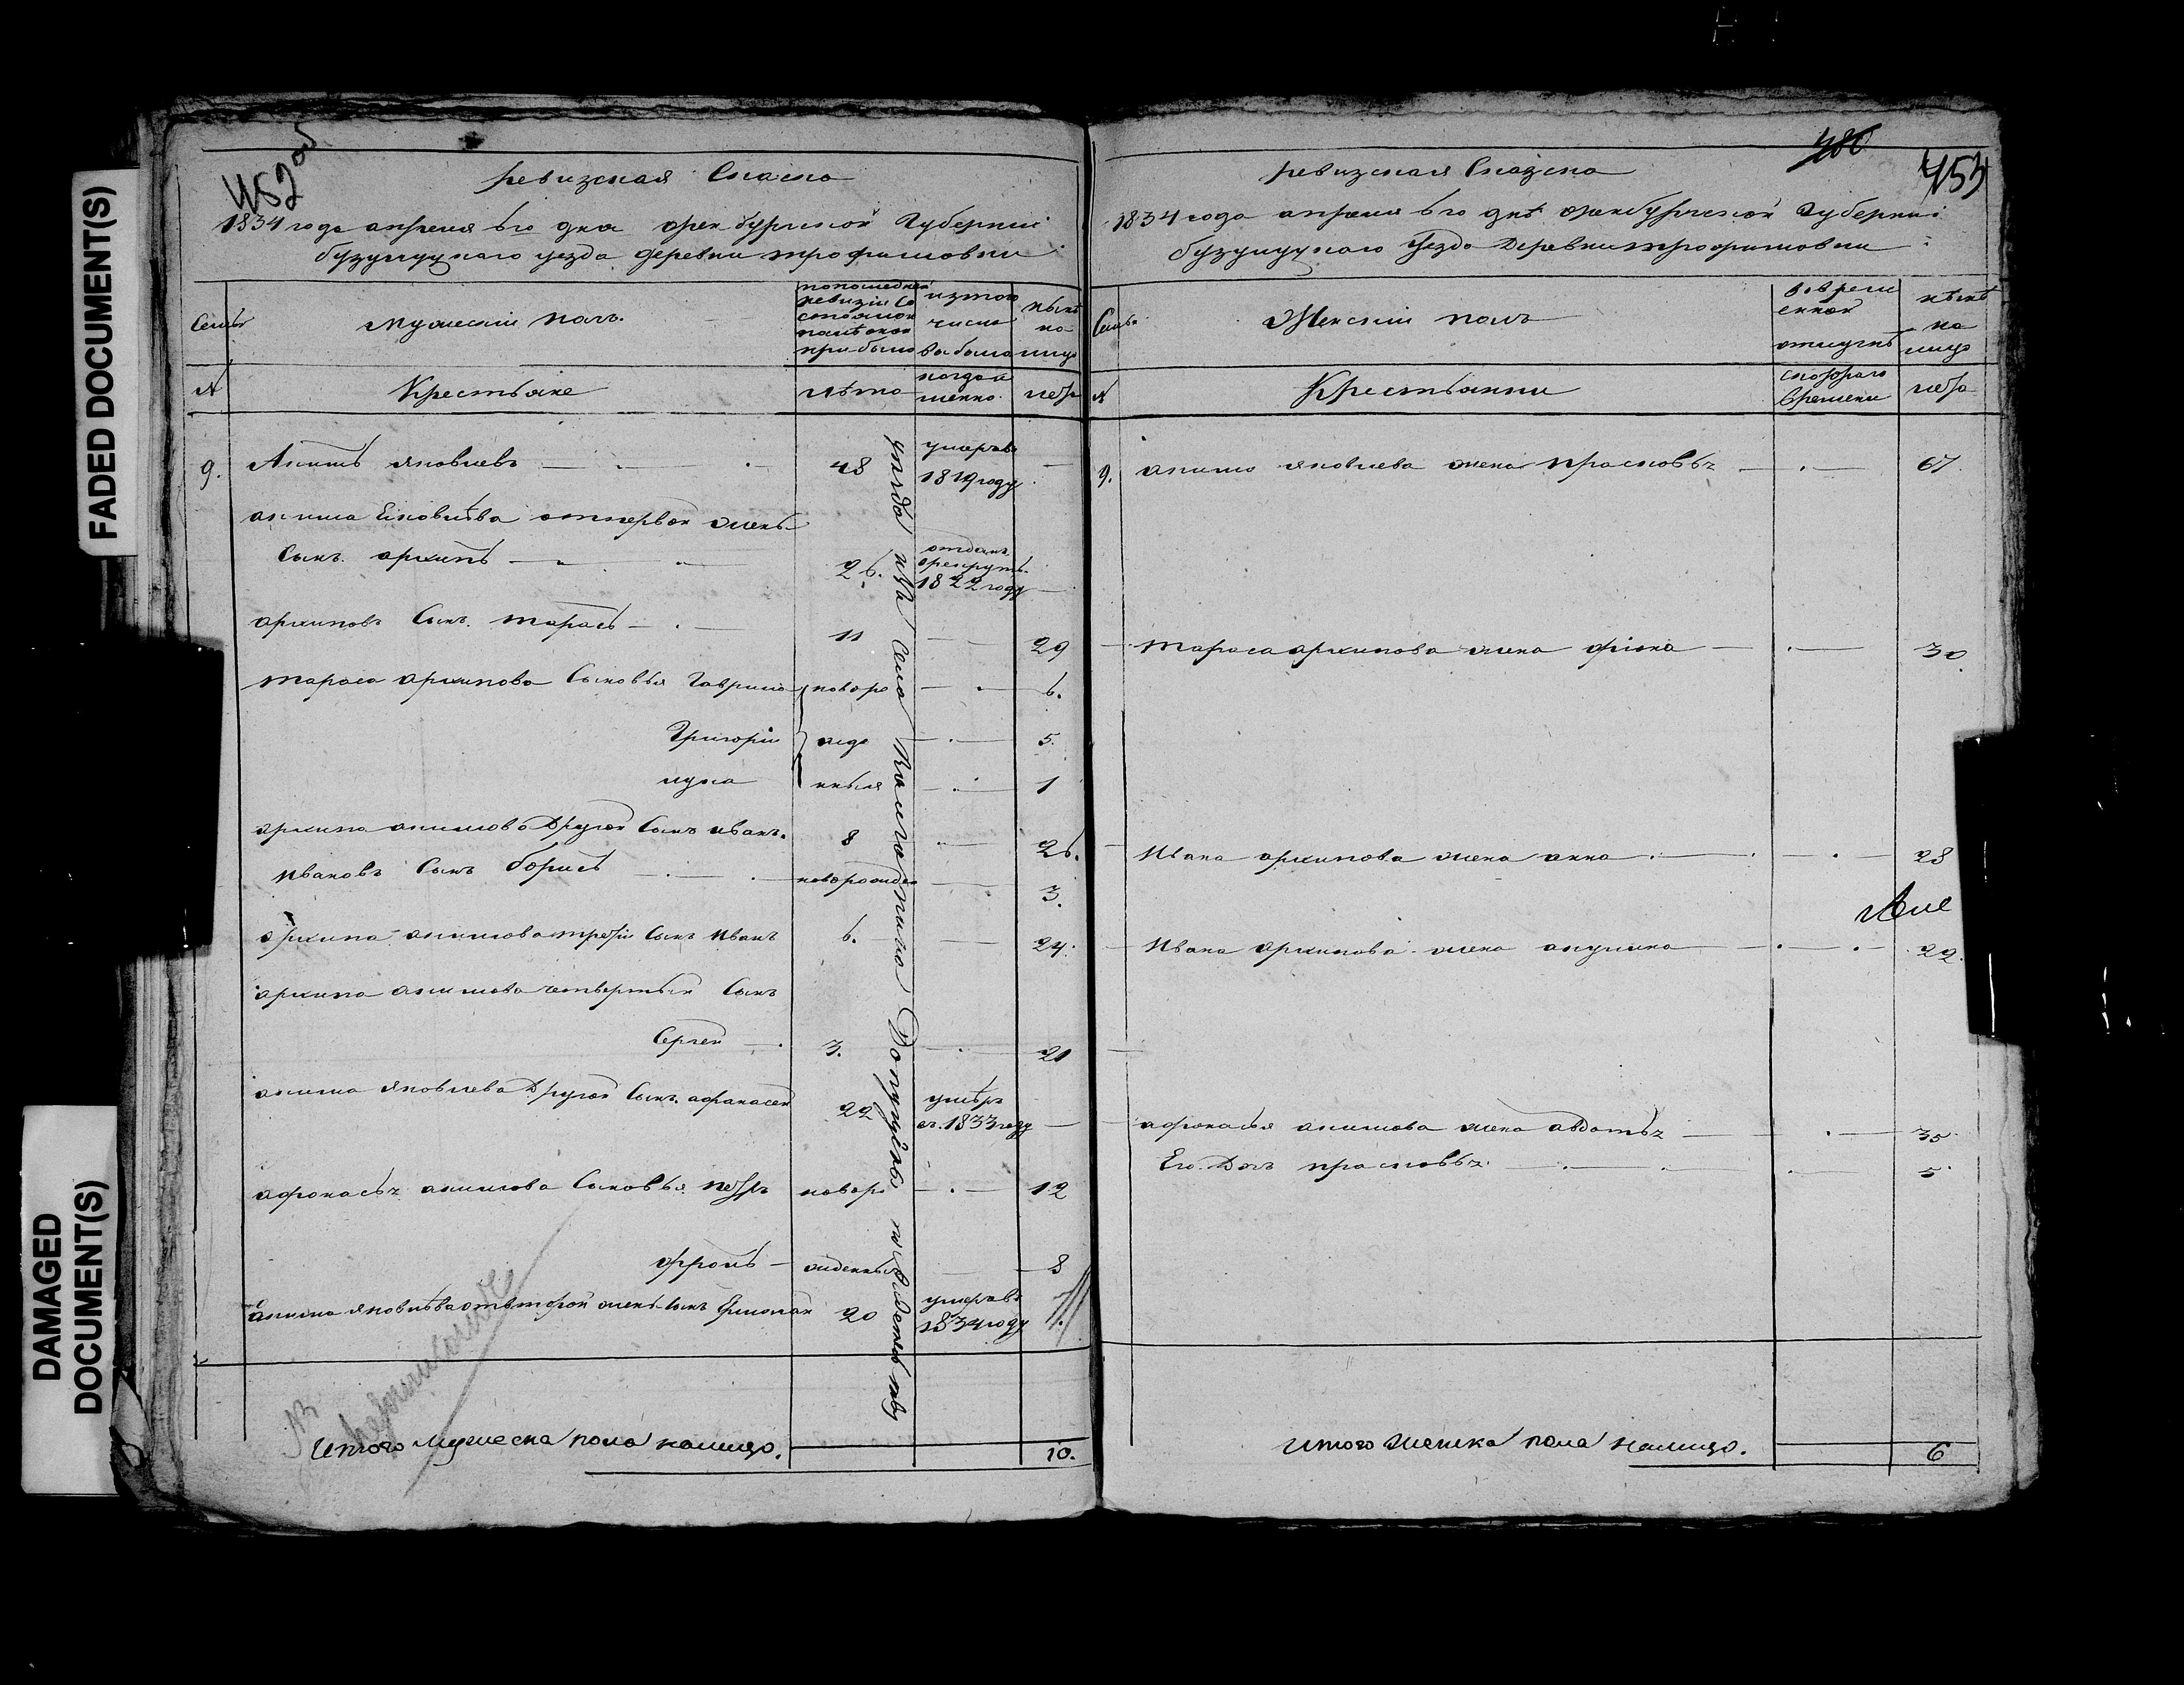 FADED DOCUMENT(S)
DAMAGED
DOCUMENT(S)
452 об
ревизская Сказка
1834 года апреля 6го дня оренбургской Губернии
бузулуцкаго уезда деревни трофимовки
Семьи
мужеский полъ.
по последней
ревизии Со
стояло и
после оной
прибыло
изтого
числа
выбыло
ныне
на
лицо
№
Крестьяне
лѣта
когда и
менно
лета
9. Акимъ яковлевъ 48 умеръвъ
1819 году
акима Яковлѣва отпервой жены
Сынъ архипъ 26. отданъ
врекруты
1822 году
архиповъ Сынъ тарасъ 11 29
тараса архипова Сыновья Гаврило новоро 6.
Григорій жде 5.
лука нныя 1
архипа акимова Другой Сынъ иванъ. 8 26.
Ивановъ Сынъ борисъ новорожде 3.
архипа акимова третій Сынъ Иванъ 6. 24.
архипа акимова четвертый Сынъ
Сергей 3. 21
акима яковлева Другой Сынъ афанасей 22 умѣръ
въ 1833 году
афонасья акимова Сыновья петръ новоро 12
фролъ жденныя 8
акима яковлѣва отвторой жены Сынъ Ермолай 20 умеръвъ
1834 году
Итого мужеска пола налицо. 10.
480
453
ревизская Сказка
1834 года апреля 6го дня оренбургской Губернии
бузулуцкаго уезда Деревни трофимовки
Семьи
Женский полъ
вовреме
нной
отлучкѣ
нынѣ
на
лицо
№
Крестьянки
скотораго
времени
лета
9. акима яковлева жена прасковья 67
тараса архипова жена фіокла 30
Ивана архипова жена анна 28
Ивана архипова жена акулина 22.
афонасья акимова жена авдотья 35
Его Дочь прасковья 5
итого Женска пола налицо. 6